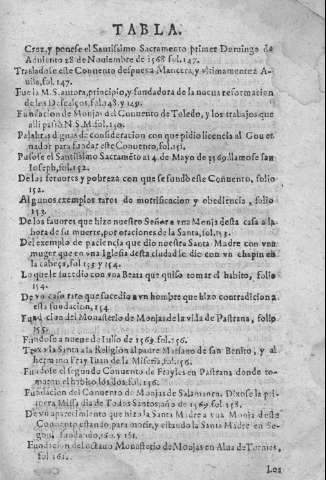 TABLA.
Cruz, y ponese el Santissimo Sacramento primer Domingo de
Aduiento 28 de Nouiembre de 1568 fol.147.
Trasladose este Conuento despues a Mancera, y vltimamente a A-
uila, fol.147.
Fue la M.S. autora, principio, y fundadora de la nueua reformacion
de los Descalços, fol.148. y 149.
Fundacion de Monjas del Conuento de Toledo, y los trabajos que
alli passò N.S.M. fol.150.
Palabras dignas de consideracion con que pidio licencia al Gouer-
nador para fundar este Conuento, fol.151.
Pusose el Santissimo Sacramẽto a 14. de Mayo de 1569. llamose san
Ioseph, fol.152.
De los feruores y pobreza con que se fundò este Cõuento, folio
152.
Algunos exemplos raros de mortificacion y obediencia, folio
153.
De los fauores que hizo nuestro Señor a vna Monja desta casa a la
hora de su muerte, por oraciones de la Santa, fol.153.
Del exemplo de paciencia que dio nuestra Santa Madre con vna
muger que en vna Iglesia desta ciudad le dio con vn chapin en
la cabeça, fol.153. y 154.
Lo que le sucedio con vna Beata que quiso tomar el habito, folio
154.
De vn caso raro que sucedio a vn hombre que hizo contradicion a
esta fundacion, 154.
Fundacion del Monasterio de Monjas de la villa de Pastrana, folio
155.
Fundose a nueue de Iulio de 1569. fol.156.
Traxo la Santa a la Religion al padre Mariano de san Benito, y al
hermano Fray Iuan de la Miseria, fol.156.
Fundose el segundo Conuento de Frayles en Pastrana donde to-
maron el habito los dos. fol.156.
Fundacion del Conuento de Monjas de Salamanca. Dixose la pri-
mera Missa dia de Todos Santos, año de 1569. fol.158.
De vn aparecimiento que hizo la Santa Madre a vna Monja deste
Conuento estando para morir, y estando la Santa Madre en Se-
gouia fundando, 160. y 161.
Fundacion del octauo Monasterio de Monjas en Alua de Tormes,
fol.161.
Los